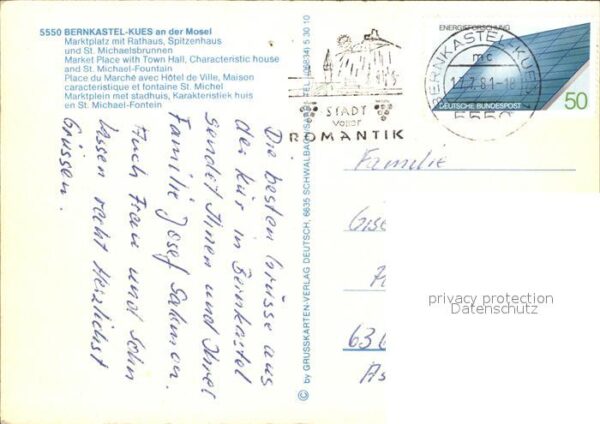 5550 BERNKASTEL-KUES an der Mosel
Marktplatz mit Rathaus, Spitzenhaus
und St. Michaelsbrunnen
Market Place with Town Hall, Characteristic house
and St. Michael-Fountain
Place du Marché avec Hôtel de Ville, Maison
caracteristique et fontaine St. Michel
Marktplein met stadhuis, Karakteristiek huis
en St. Michael-Fontein
STADT
voller
ROMANTIK
BERNKASTEL-KUES
mc
7.81-18
5550
ENERGIEFORSCHUNG
DEUTSCHE BUNDESPOST
50
© by GRUSSKARTEN-VERLAG DEUTSCH, 6635 SCHWALBACH/SAAR, TEL. (06834) 5 30 10
Die besten Grüsse aus
der Kur in Bernkastel
sendet Ihnen und Ihrer
Familie Josef
Auch Frau und Sohn
lassen recht herzlichst
Grüssen.
Familie
Gise
636
As
privacy protection
Datenschutz